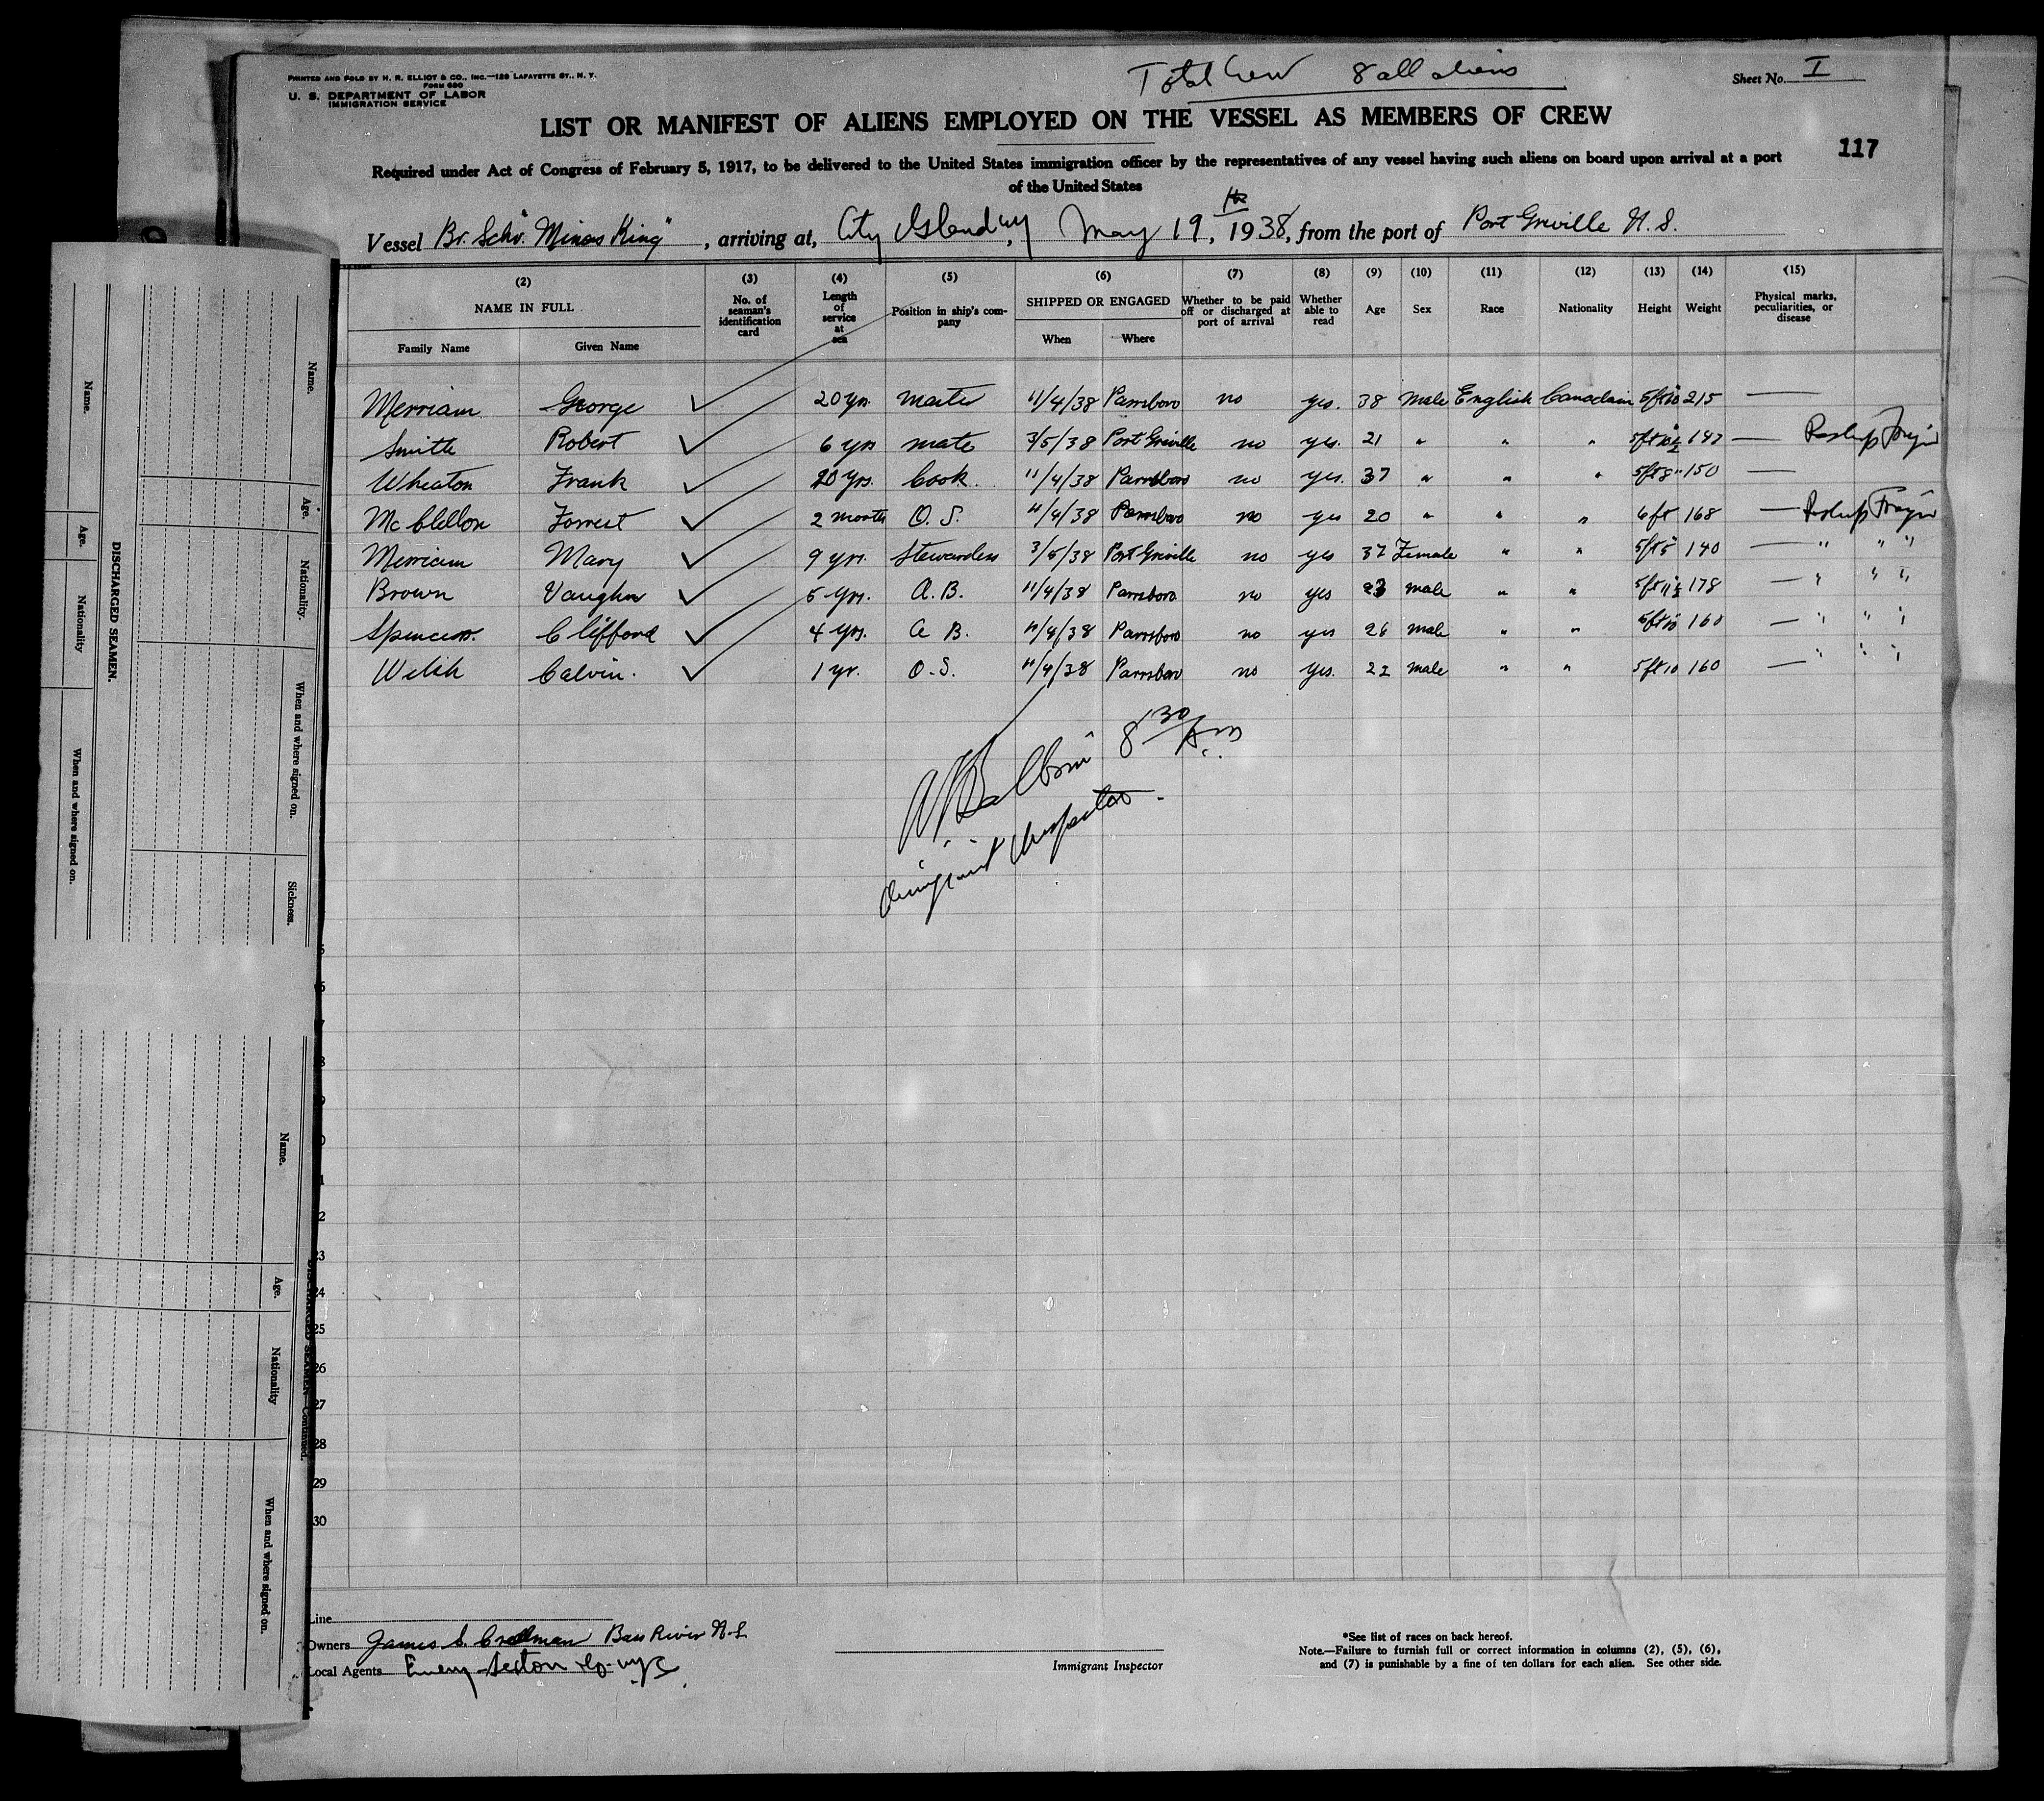 PRINTED AND SOLD BY H. R. ELLIOT & CO., INC.—129 LAFAYETTE ST., N. Y.
FORM 680
U. S. DEPARTMENT OF LABOR
IMMIGRATION SERVICE
Total Crew 8 all aliens
Sheet No. I
LIST OR MANIFEST OF ALIENS EMPLOYED ON THE VESSEL AS MEMBERS OF CREW
117
Required under Act of Congress of February 5, 1917, to be delivered to the United States immigration officer by the representatives of any vessel having such aliens on board upon arrival at a port
of the United States
Vessel Br. Schr. "Minas King", arriving at, City Island, NY, May 19, 1938, from the port of Port Greville N. S.
(2) (3) (4) (5) (6) (7) (8) (9) (10) (11) (12) (13) (14) (15)
NAME IN FULL
Family Name Given Name
No. of seaman's identification card
Length of service at sea
Position in ship's company
SHIPPED OR ENGAGED
When Where
Whether to be paid off or discharged at port of arrival
Whether able to read
Age Sex Race Nationality Height Weight
Physical marks, peculiarities, or disease
Merriam George ✓ 20 yrs. master 11/4/38 Parrsboro no yes. 38 Male English Canadain 5ft10 215 —
Smith Robert ✓ 6 yrs mate 3/5/38 Port Greville no yes. 21 " " " 5ft10½ 147 —
Wheaton Frank ✓ 20 yrs. Cook. 11/4/38 Parrsboro no yes. 37 " " " 5ft8" 150 —
McClellon Forrest ✓ 2 months O. S. 11/4/38 Parrsboro no yes 20 " " " 6ft 168 —
Merriam Mary ✓ 9 yrs. Stewardess 3/5/38 Port Greville no yes 37 Female " " 5ft5" 140 — " " "
Brown Vaughn ✓ 5 yrs. A. B. 11/4/38 Parrsboro no yes 23 male " " 5ft11½ 178 — " " "
Spencer Clifford ✓ 4 yrs. A B. 11/4/38 Parrsboro no yes 26 male " " 5ft10 160 — " " "
Welsh Calvin. ✓ 1 yr. O. S. 11/4/38 Parrsboro no yes. 22 male " " 5ft10 160 — " " "
8 30 Am
Immigrant Inspector.
23
24
25
26
27
28
29
30
Line
Owners James S. Creelman Bass River N-S
Local Agents
Immigrant Inspector
*See list of races on back hereof.
Note.—Failure to furnish full or correct information in columns (2), (5), (6),
and (7) is punishable by a fine of ten dollars for each alien. See other side.
DISCHARGED SEAMEN.
Name. Age. Nationality When and where signed on.
Name. Age. Nationality. When and where signed on. Sickness.
DISCHARGED SEAMEN—Continued.
Name. Age. Nationality When and where signed on.